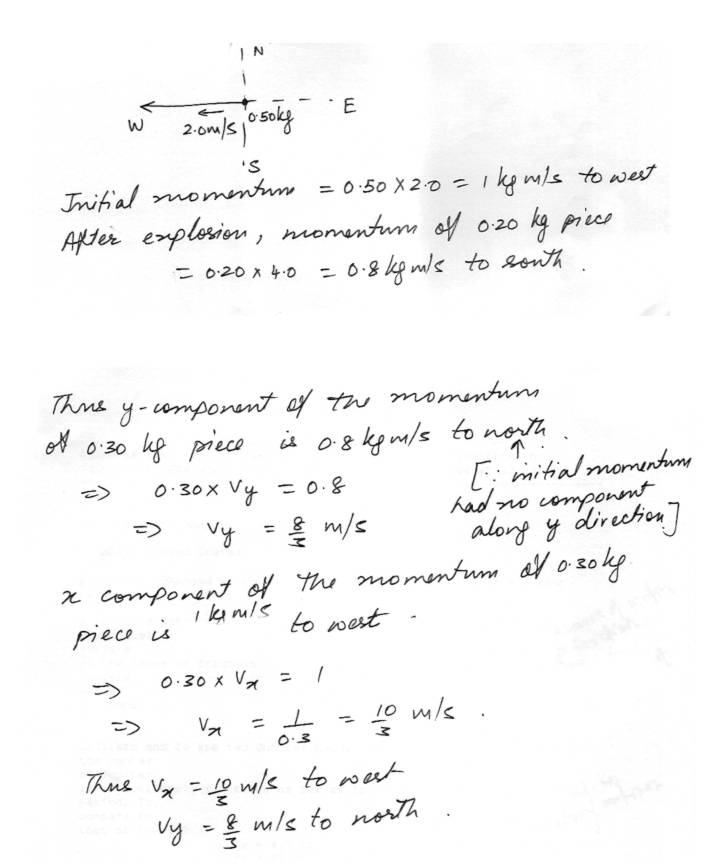 N
E
W
2.0m/s
0.50kg
'S
Initial momentum = 0.50 X 2.0 = 1 kg m/s to west
After explosion, momentum of 0.20 kg piece
= 0.20 x 4.0 = 0.8 kg m/s to south.
Thus y-component of the momentum
of 0.30 kg piece is 0.8 kg m/s to north.
↑
[∵ initial momentum
had no component
along y direction]
=> 0.30 x Vy = 0.8
=> Vy = 8/3 m/s
x component of the momentum of 0.30kg
piece is 1 kg m/s to west.
=> 0.30 x Vx = 1
=> Vx = 1/0.3 = 10/3 m/s.
Thus Vx = 10/3 m/s to west
Vy = 8/3 m/s to north.